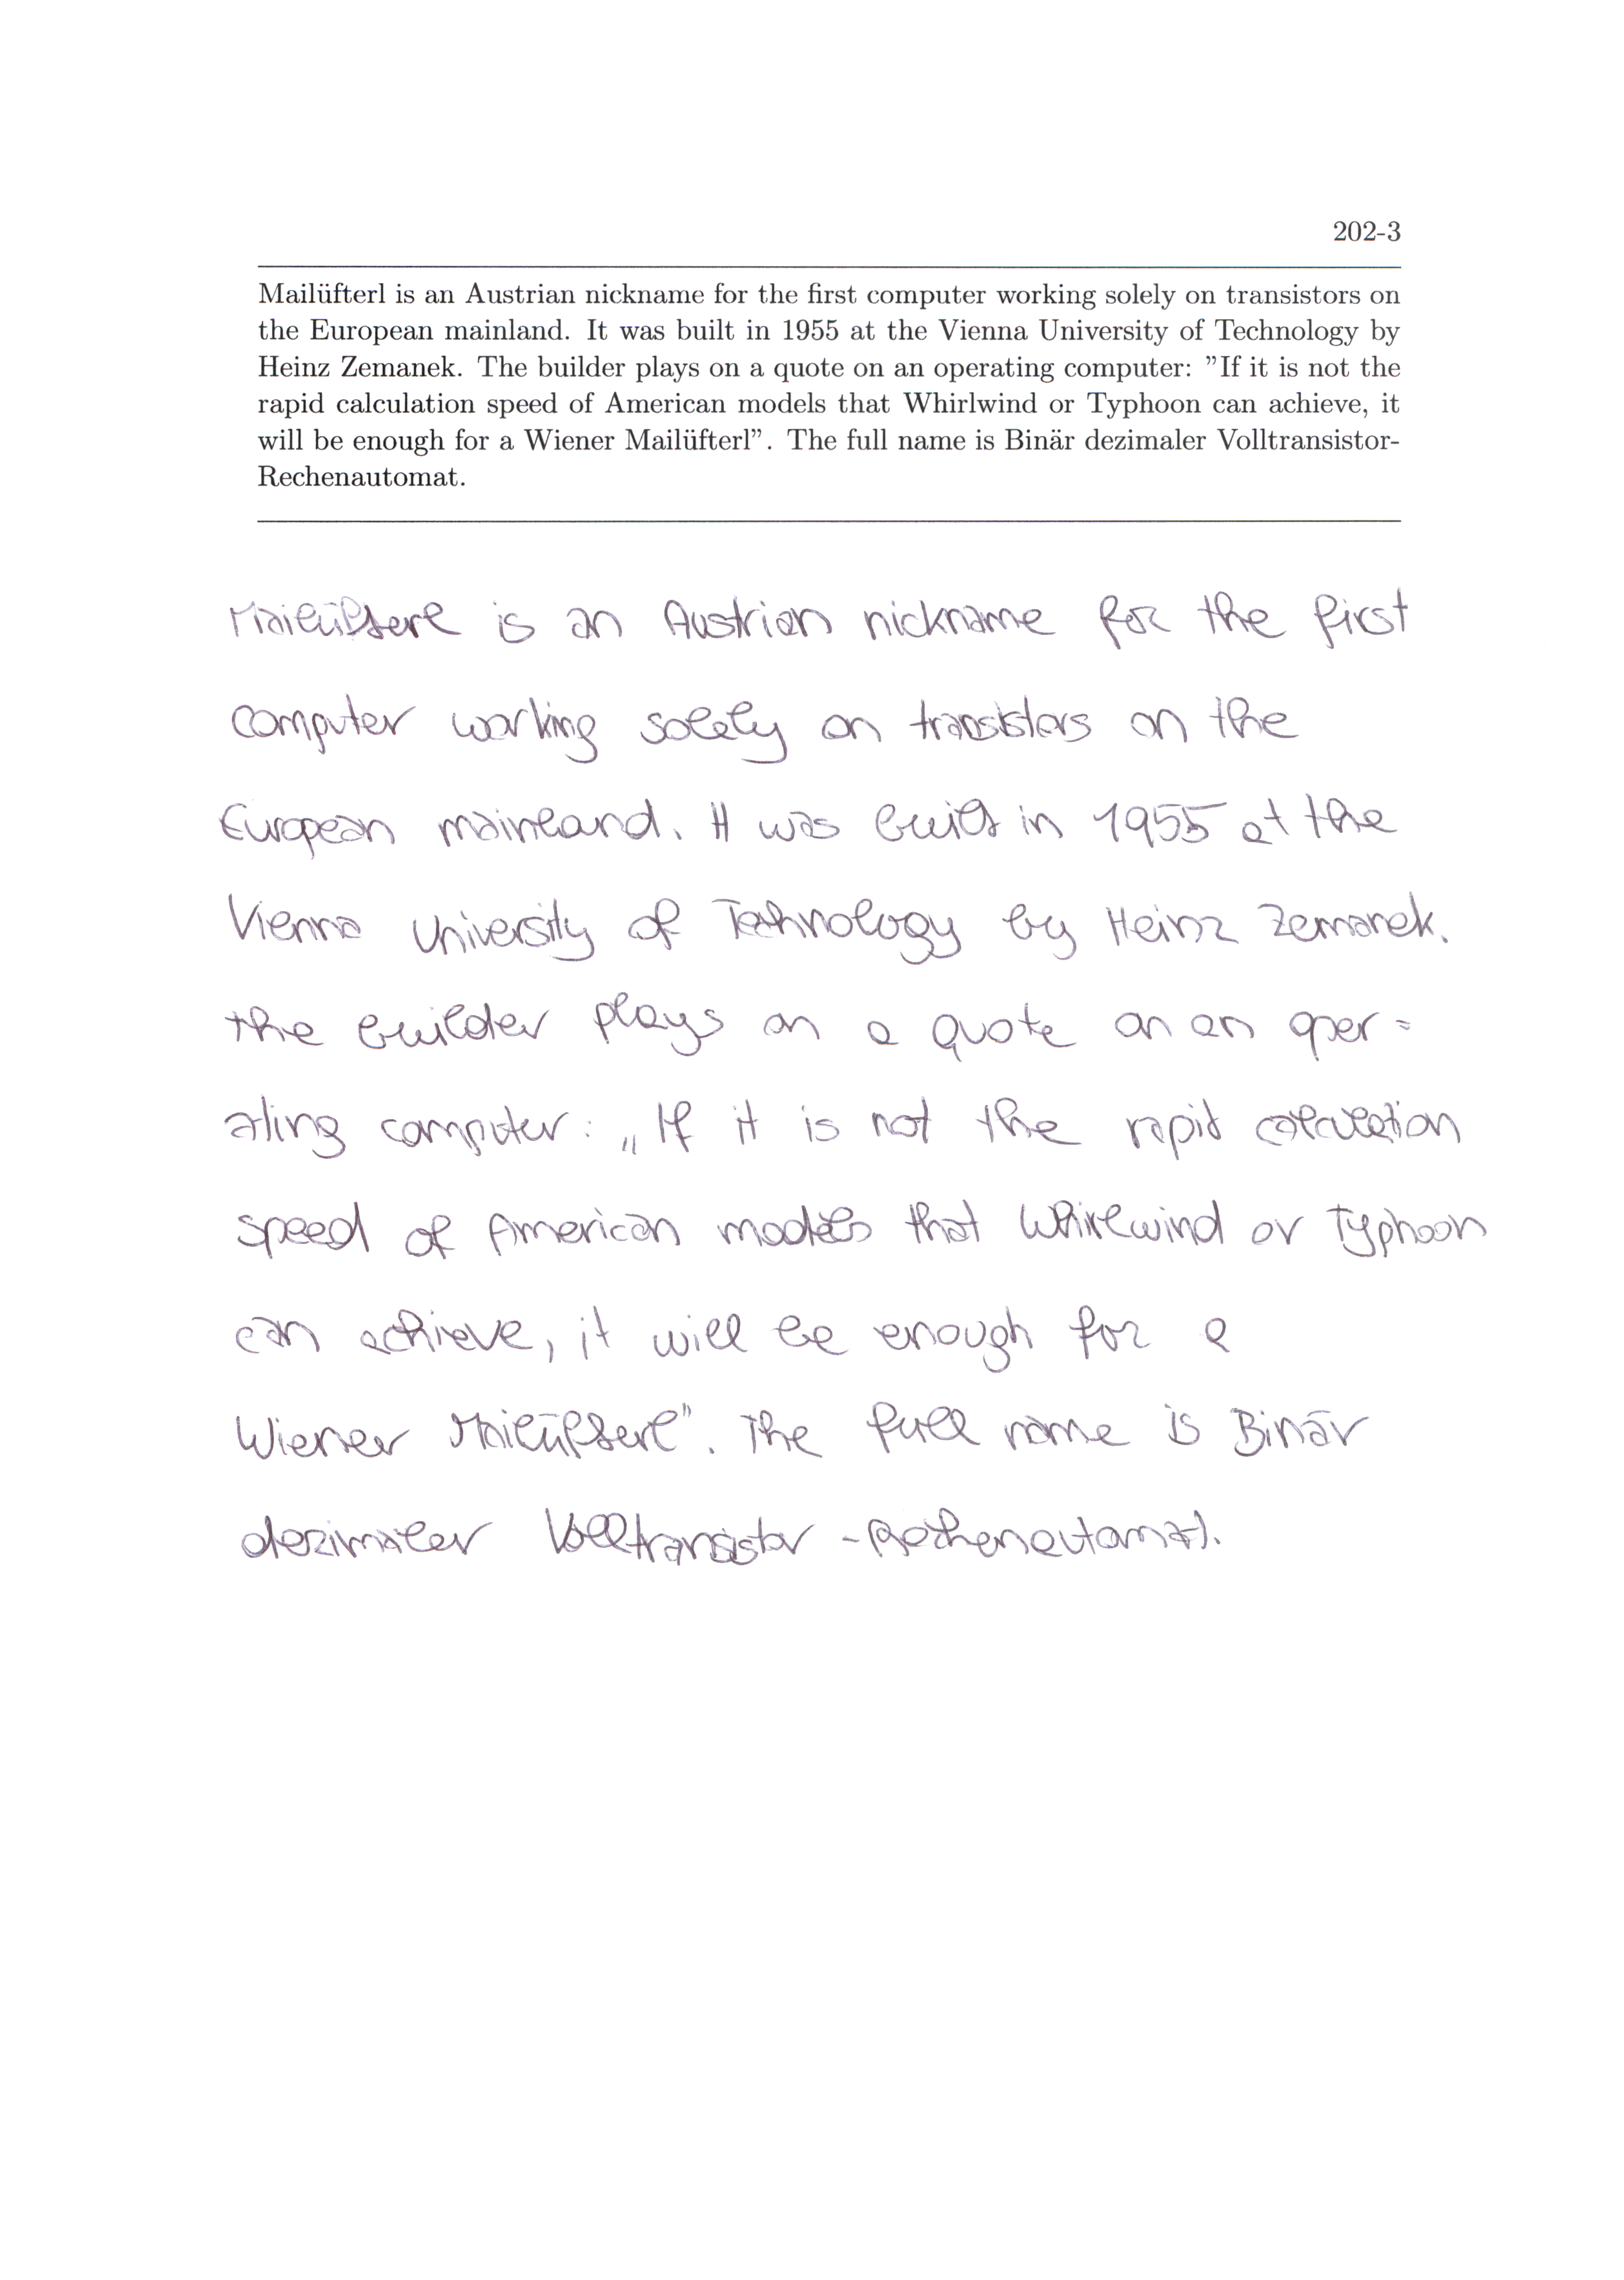 202-3
Mailüfterl is an Austrian nickname for the first computer working solely on transistors on
the European mainland. It was built in 1955 at the Vienna University of Technology by
Heinz Zemanek. The builder plays on a quote on an operating computer: ”If it is not the
rapid calculation speed of American models that Whirlwind or Typhoon can achieve, it
will be enough for a Wiener Mailüfterl”. The full name is Binär dezimaler Volltransistor-
Rechenautomat.
Mailüfterl is an Austrian nickname for the first
computer working solely on transistors on the
European mainland. It was built in 1955 at the
Vienna University of Technology by Heinz Zemanek.
the builder plays on a quote on an oper=
ating computer: „If it is not the rapid calculation
speed of American models that Whirlwind or Typhoon
can achieve, it will be enough for a
Wiener Mailüfterl". The full name is Binär
dezimaler Volltransistor -Rechenautomat).